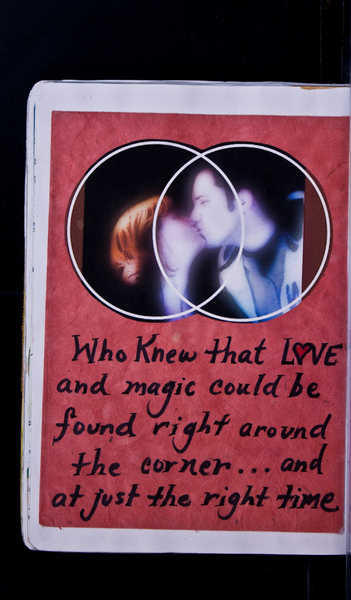 Who Knew that LOVE
and magic could be
found right around
the corner... and
at just the right time